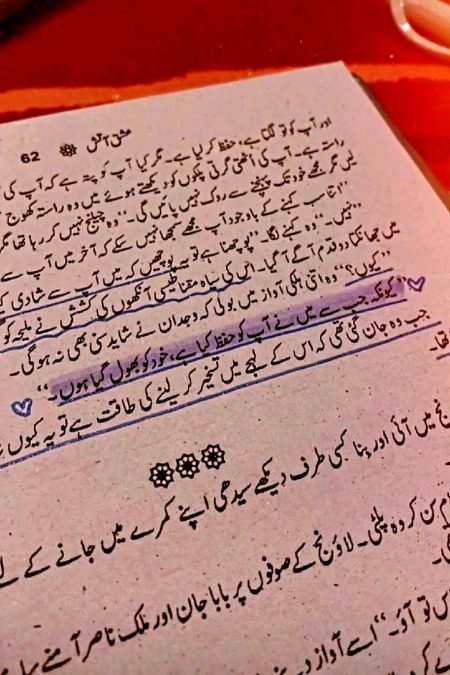 62 ❁ عشق آتش
اور آپ کو تو لگتا ہے، حفظ کر لیا ہے۔ مگر کیا آپ کو پتہ ہے کہ آپ کی
راستہ ہے۔ آپ کی اٹھتی گرتی پلکوں کو دیکھتے ہوئے میں وہ راستہ کھوج
لیں گر مجھے خود تک پہنچنے سے روک نہیں پائیں گی۔“ وہ چیلنج نہیں کر رہا تھا مگر
”اتنا سب کہنے کے باوجود آپ مجھے سمجھا نہیں سکے کہ آخر میں آپ سے
”نہیں۔“ وہ کہنے لگا۔ ”پوچھنا ہے تو یہ پوچھیں کہ میں آپ سے شادی
میں جھانکتا دو قدم آگے آ گیا۔ اس کی سیاہ مقناطیسی آنکھوں کی کشش نے ملیحہ کو
”کیوں؟“ وہ اتنی ہلکی آواز میں بولی کہ وجدان نے شاید سنی بھی نہ ہو گی۔
”کیونکہ جب سے میں نے آپ کو حفظ کیا ہے، خود کو بھول گیا ہوں۔“
جب وہ جان گئی تھی کہ اس کے لہجے میں تسخیر کر لینے کی طاقت ہے تو یہ کیوں
تھا۔
❁❁❁
میں آئی اور بنا کسی طرف دیکھے سیدھی اپنے کمرے میں جانے کے
سن کر وہ پلٹی۔ لاؤنج کے صوفوں پر بابا جان اور ملک ناصر آمنے
تو آؤ۔“ اسے آواز